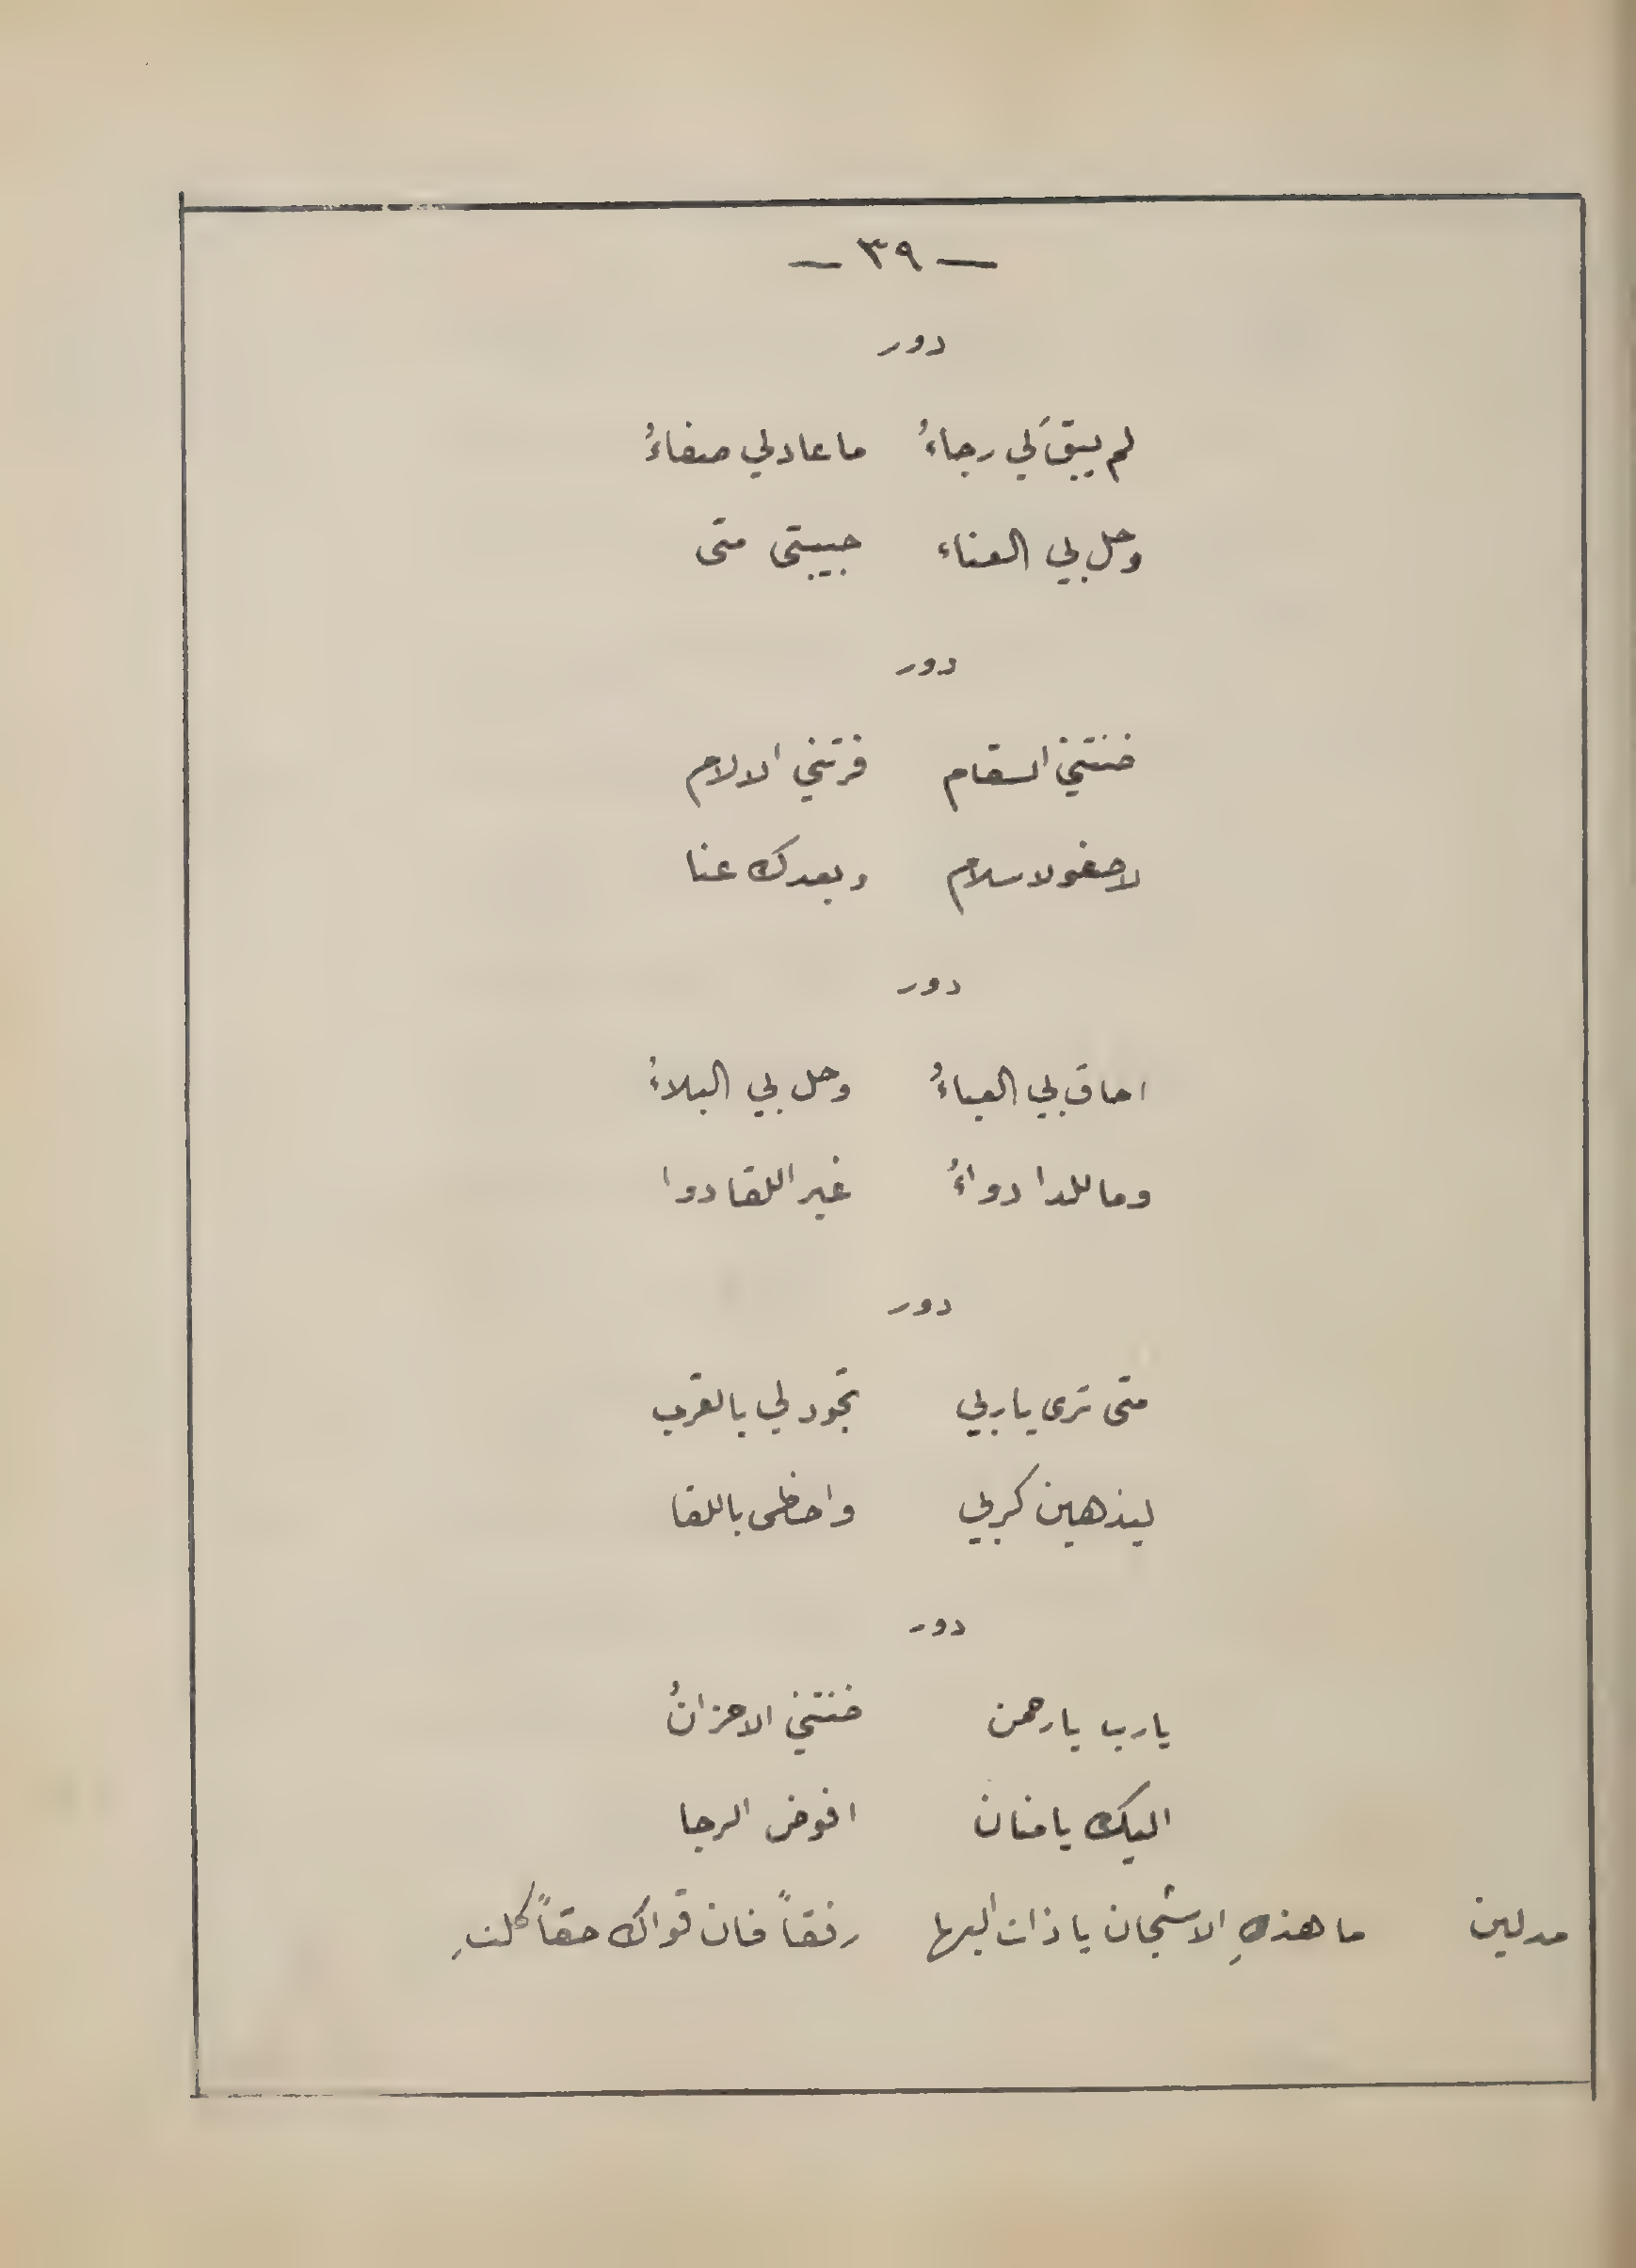 — ٣٩ —
دور
لم يبقَ لي رجاءُ ما عاد لي صفاءُ
وحل بي العناء حبيبتي متى
دور
ضنتني السقام فرتني الالام
لا صفو لا سلام وبعدك عنا
دور
احاق بي العياءُ وحل بي البلاءُ
وما للدا دواءُ غير اللقا دوا
دور
متى ترى يا ربي تجود لي بالقرب
ليذهبن كربي واحظى باللقا
دور
يا رب يا رحمن ضنتني الاحزانُ
اليك يا منان افوض الرجا
مدلين ما هذهِ الاشجان يا ذات البها رفقاً فان قواك حقاً كلتِ